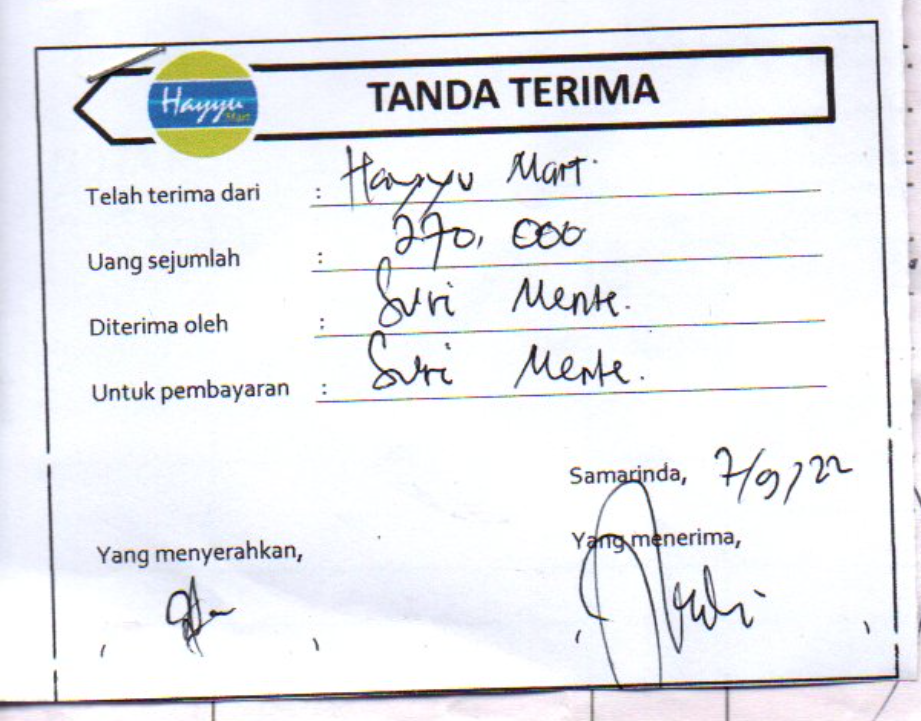 Hayyu
Mart
TANDA TERIMA
Telah terima dari : Hayyu Mart.
Uang sejumlah : 270.000
Diterima oleh : Suri Mente.
Untuk pembayaran : Suri Mente.
Samarinda, 7/9/22
Yang menyerahkan,
Yang menerima,